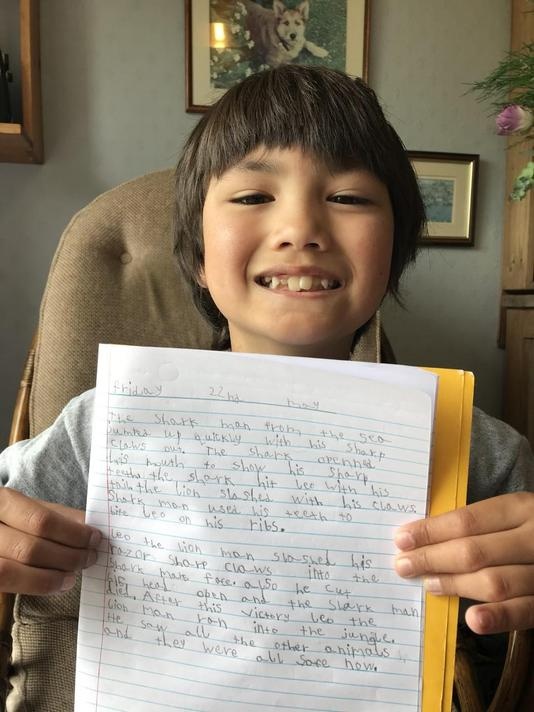 Friday 22nd may
The Shark man from the Sea
Jumted up quickly with his sharp
claws out. The shark openned
his mouth to show his sharp
teeth. the shark hit Leo with his
tail. the lion slashed with his claws.
Shark man used his teeth to
bite Leo on his ribs.
Leo the lion man slashed his
razor sharp claws into the
shark mans face. also he cut
his head open and the shark man
died. After this victory Leo the
Lion man ran into the jungle.
He saw all the other animals
and they were all safe now.